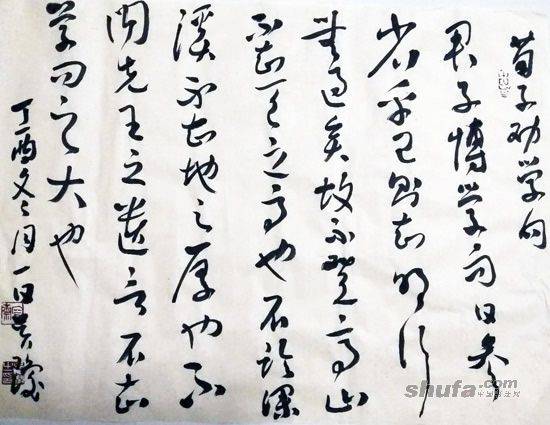 荀子劝学句
君子博学而日参
省乎己则知明行
无过矣故不登高山
不知天之高也不临深
溪不知地之厚也不
闻先王之遗言不知
学问之大也
丁酉冬月一日
shufa.com
中国书法网